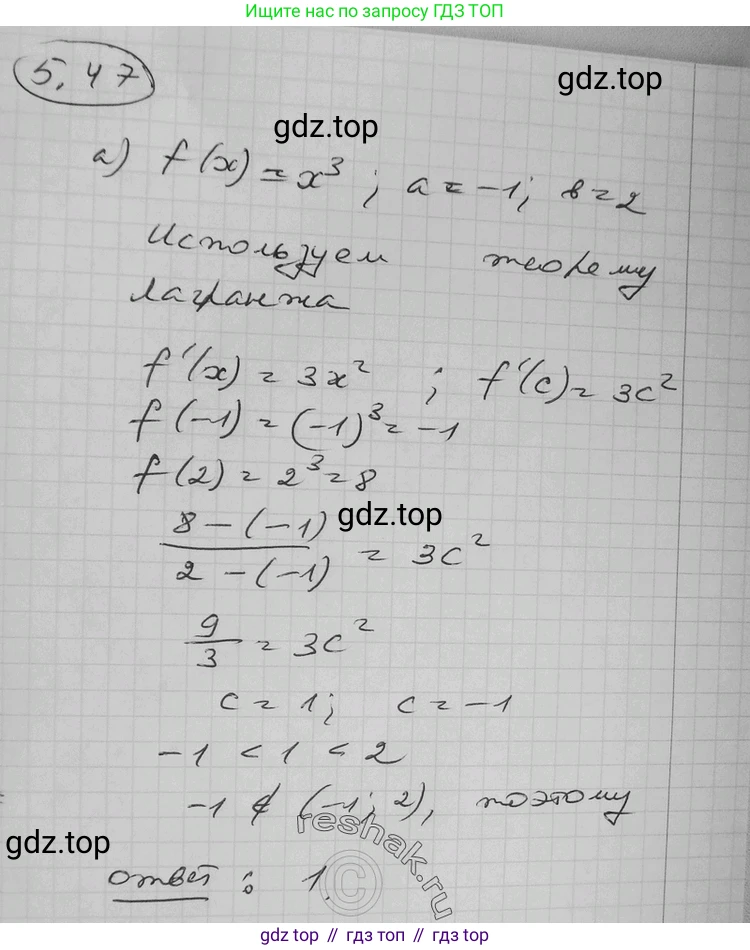 Ищите нас по запросу ГДЗ ТОП
5.47
gdz.top
gdz.top
а) f(x) = x³; a = -1; b = 2
Используем теорему
Лагранжа
f'(x) = 3x²; f'(c) = 3c²
f(-1) = (-1)³ = -1
f(2) = 2³ = 8
gdz.top
8 - (-1) / 2 - (-1) = 3c²
9/3 = 3c²
c = 1; c = -1
-1 < 1 < 2
-1 ∉ (-1; 2), поэтому
reshak.ru
©
gdz.top
ответ: 1.
gdz.top // гдз.топ // gdz.top